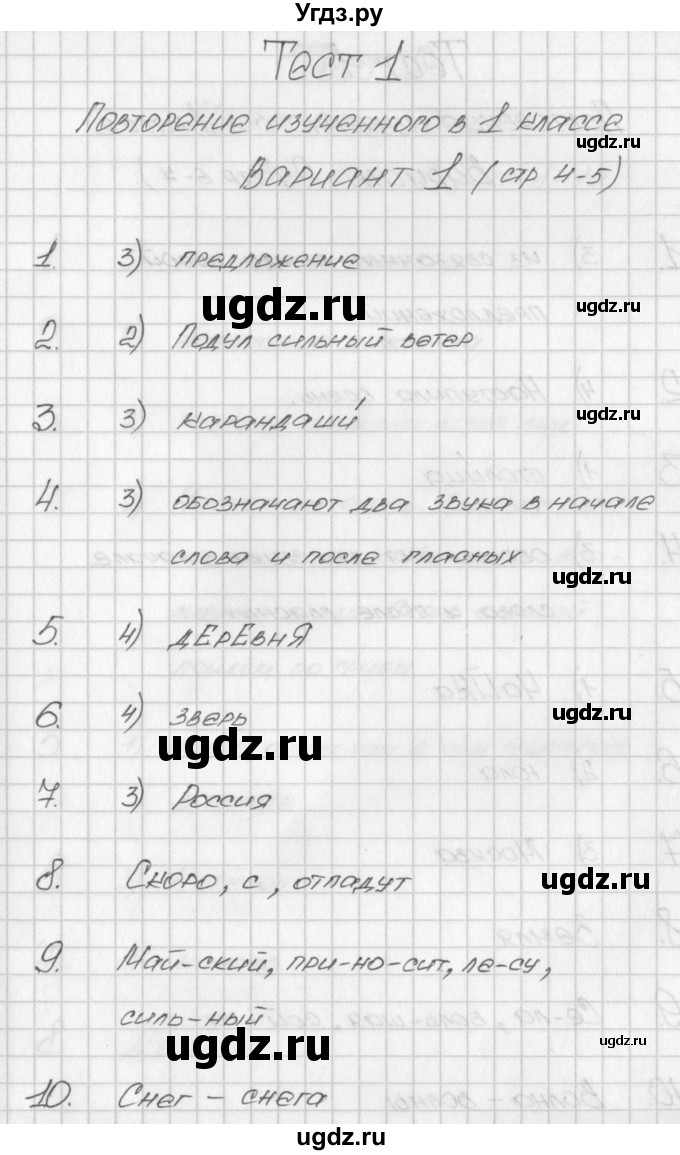 Угдз.ру
Тест 1
Повторение изученного в 1 классе
ugdz.ru
Вариант 1 (стр 4-5)
1. 3) предложение
ugdz.ru
ugdz.ru
2. 2) Подул сильный ветер
3. 3) карандаши́
ugdz.ru
4. 3) обозначают два звука в начале
слова и после гласных
ugdz.ru
5. 4) дЕрЕвнЯ
6. 4) зверь
ugdz.ru
ugdz.ru
7. 3) Россия
8. Скоро, с, отпадут
ugdz.ru
9. Май-ский, при-но-сит, ле-су,
силь-ный
ugdz.ru
ugdz.ru
10. Снег - снега
ugdz.ru